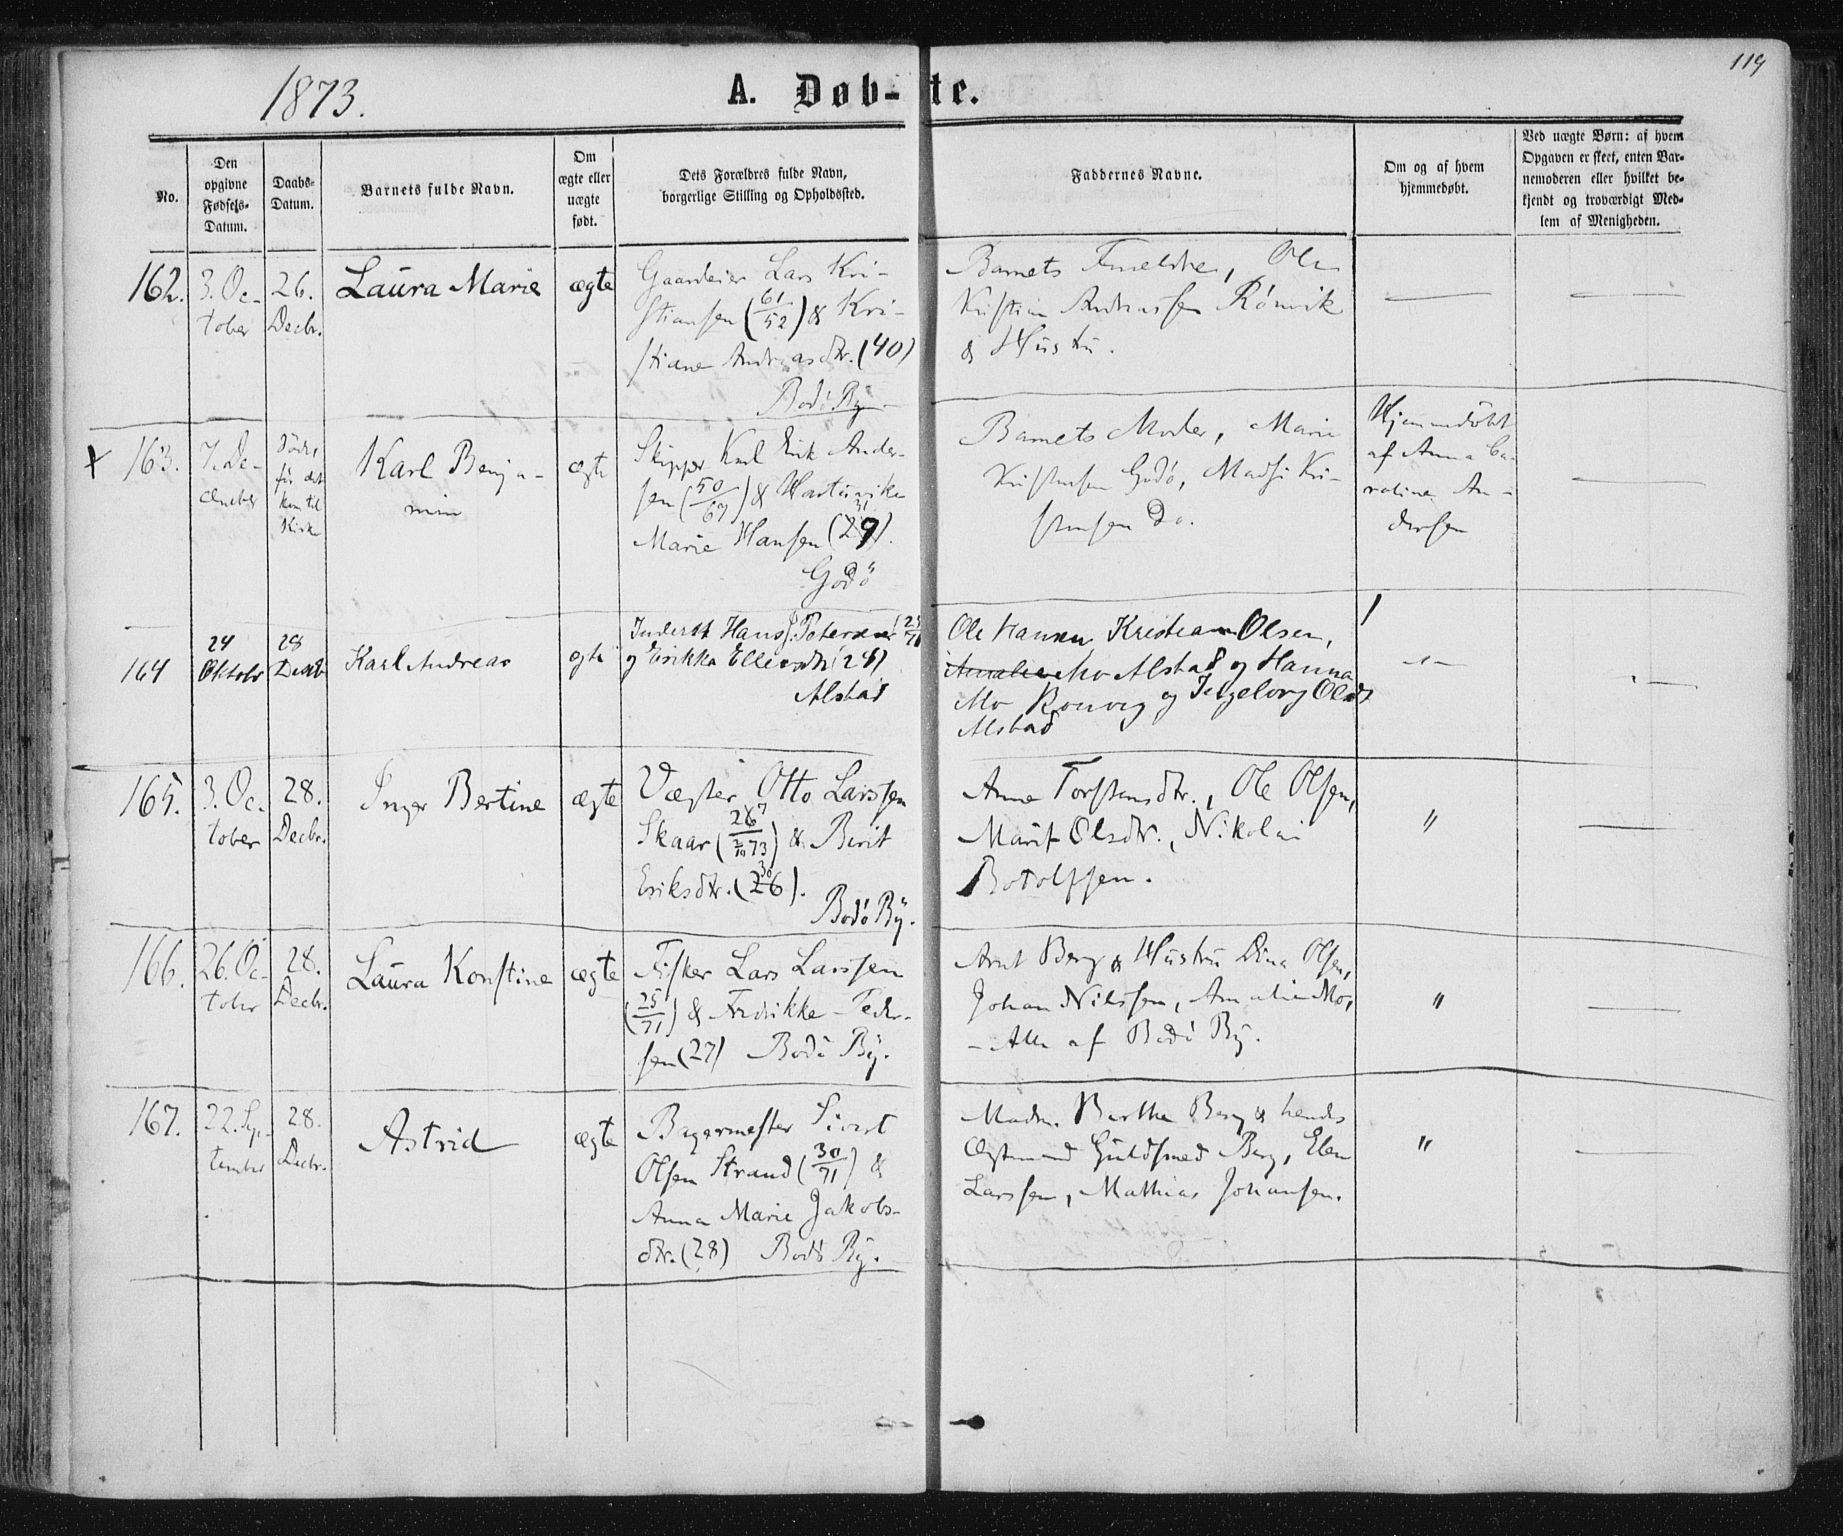 119
1873.
A. Døb-te.
No.
Den
opgivne
Fødsels-
Datum.
Daabs-
Datum.
Barnets fulde Navn.
Om
ægte eller
uægte
født.
Dets Forældres fulde Navn,
borgerlige Stilling og Opholdssted.
Faddernes Navne.
Om og af hvem
hjemmedøbt.
Ved uægte Børn: af hvem
Opgaven er skeet, enten Bar-
nemoderen eller hvilket be-
kjendt og troværdigt Med-
lem af Menigheden.
162.
3. Oc-
tober
26.
Decbr.
Laura Marie
ægte
Gaardeier Lars Kri-
stiansen (61/52) & Kri-
stiane Andreasdtr. (40)
Bodö By
Barnets Forældre, Ole
Kristian Andreassen Rönvik
& Hustru.
—
—
x 163.
7. De-
cember
Döde,
för det
kom til
Kirke
Karl Benja-
min
ægte
Skipper Karl Erik Ander-
sen (50/67) & Hartvikka
Marie Hansen (29) 31
Godö
Barnets Moder, Marie
Kristensen Godö, Kri-
stensen Do.
Hjemmedöbt
af Anna Ca-
roline An-
dersen
—
164
24
Oktobr
28
Decbr
Karl Andreas
ægte
Inderst Hans J. Petersen (25/71)
og Erikka Ellevsdtr (28)
Alstad
Ole Hansen, Kristian Olsen,
Mo Alstad og Hanna
Mo Rönvig og Ingeborg Olsdt
Alstad
—
—
165.
3. Oc-
tober
28.
Decbr.
Inger Bertine
ægte
Vægter Otto Larssen
Skaar (26 7/73) & Berit
Eriksdtr. (26) 30.
Bodö By.
Anne Torstensdtr., Ole Olsen,
Marit Olsdtr., Nikolai
Botolfsen.
"
—
166.
26. Oc-
tober
28.
Decbr.
Laura Konstine
ægte
Fisker Lars Larssen
(25/71) & Fredrikke Peder-
sen (27) Bodö By.
Arnt Berg & Hustru Dina Olsen,
Johan Nilssen, Amalie Mo,
- Alle af Bodö By.
"
—
167.
22. Sep-
tember
28.
Decbr.
Astrid
ægte
Bagermester Sivert
Olsen Strand (30/71) &
Anna Marie Jakobs-
dtr. (28) Bodö By.
Madm. Berthe Berg & hendes
Ægtemand Guldsmed Berg, Elen
Larssen, Mathias Johansen.
"
—